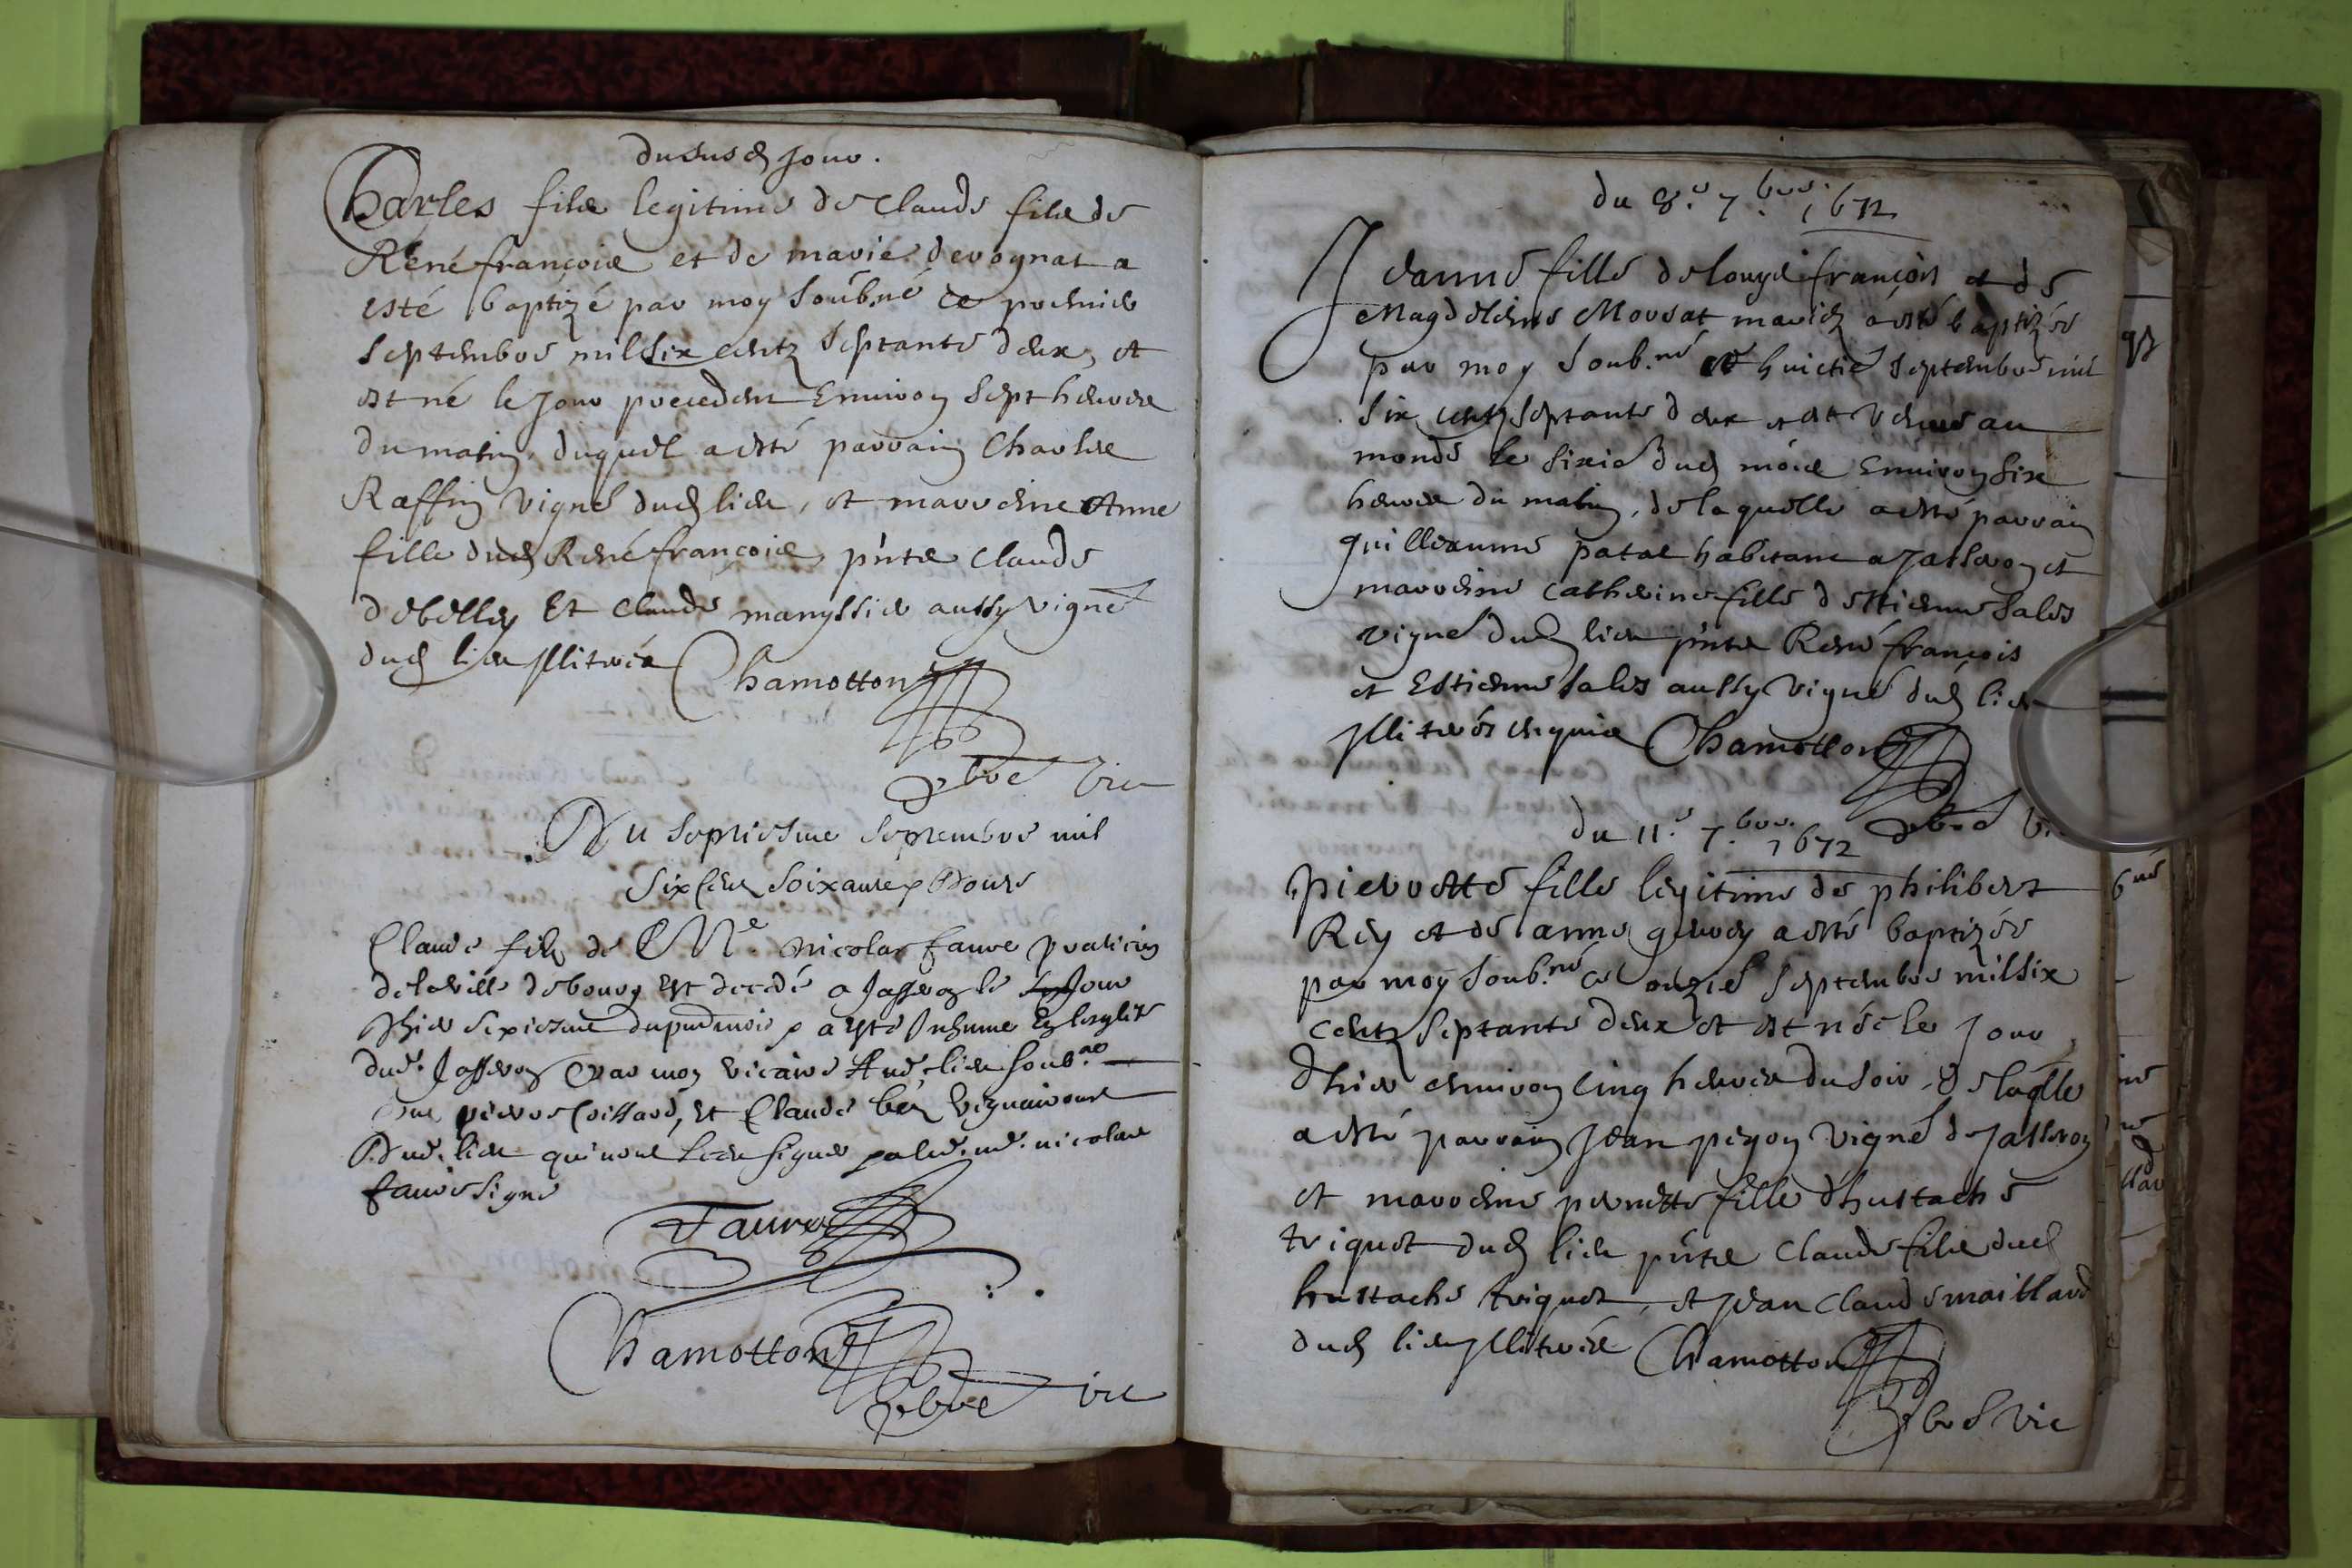 du susd Jour.
Charles filz legitime de Claude filz de
René françois et de marie devognat a
esté baptizé par moy Soub.né ce premier
Septembre mil six centz Septante deux, et
est né le Jour precedent Enuiron Sept heures
du matin, duquel a esté parrain Charles
Raffin vigne.n dud lieu, et marreine Anne
fille dud René françois, pnts Claude
debelley Et Claude manyssier aussy vigne.n
dud lieu Illitrés Chamotton
pbre vic
Du Septiesme Septembre mil
Six Cent Soixante & Douze
Claude filz de Me. Nicolas Faure praticien
de la ville de bourg Est decedé a Jasseron le Jour
d'hier Sixiesme du pnt mois & a esté Inhume En leglise
dud. Jasseron par moy vicaire dud. lieu soub.né
pierre Coissard, Et Claude
dud. lieu qui nont Sceu signer led. me. nicolas
faure signé
Faure
Chamotton
pbre vic
du 8.e 7.bre 1672
Jeanne fille de Louys françois et de
Magdeleine Morsat mariez a esté baptizée
par moy Soub.né ce huictie Septembre mil
Six centz Septante deux et est venue au
monde le Sixie dud mois Enuiron Six
heures du matin, de laquelle a esté parrain
guilleaume patat habitant a Jasseron et
marreine Catherine fille d'Estienne Sales
vigne.n dud lieu pnts René françois
et Estienne Sales aussy vigne.n dud lieu
Illitrés enquis Chamotton
pbre vi
du 11.e 7.bre 1672
Pierrette fille legitime de philibert
Rey et de anne a esté baptizée
par moy Soub.né ce onzie Septembre mil six
centz Septante deux et est née le Jour
d'hier enuiron Cinq heures du soir, de laqlle
a esté parrain Jean pigon vigne.n de Jasseron
et marreine pernette fille d'hustache
triquet dud lieu pnts Claude filz dud
hustache triquet, et Jean Claude maillard
dud lieu Illitrés Chamotton
pbre vic